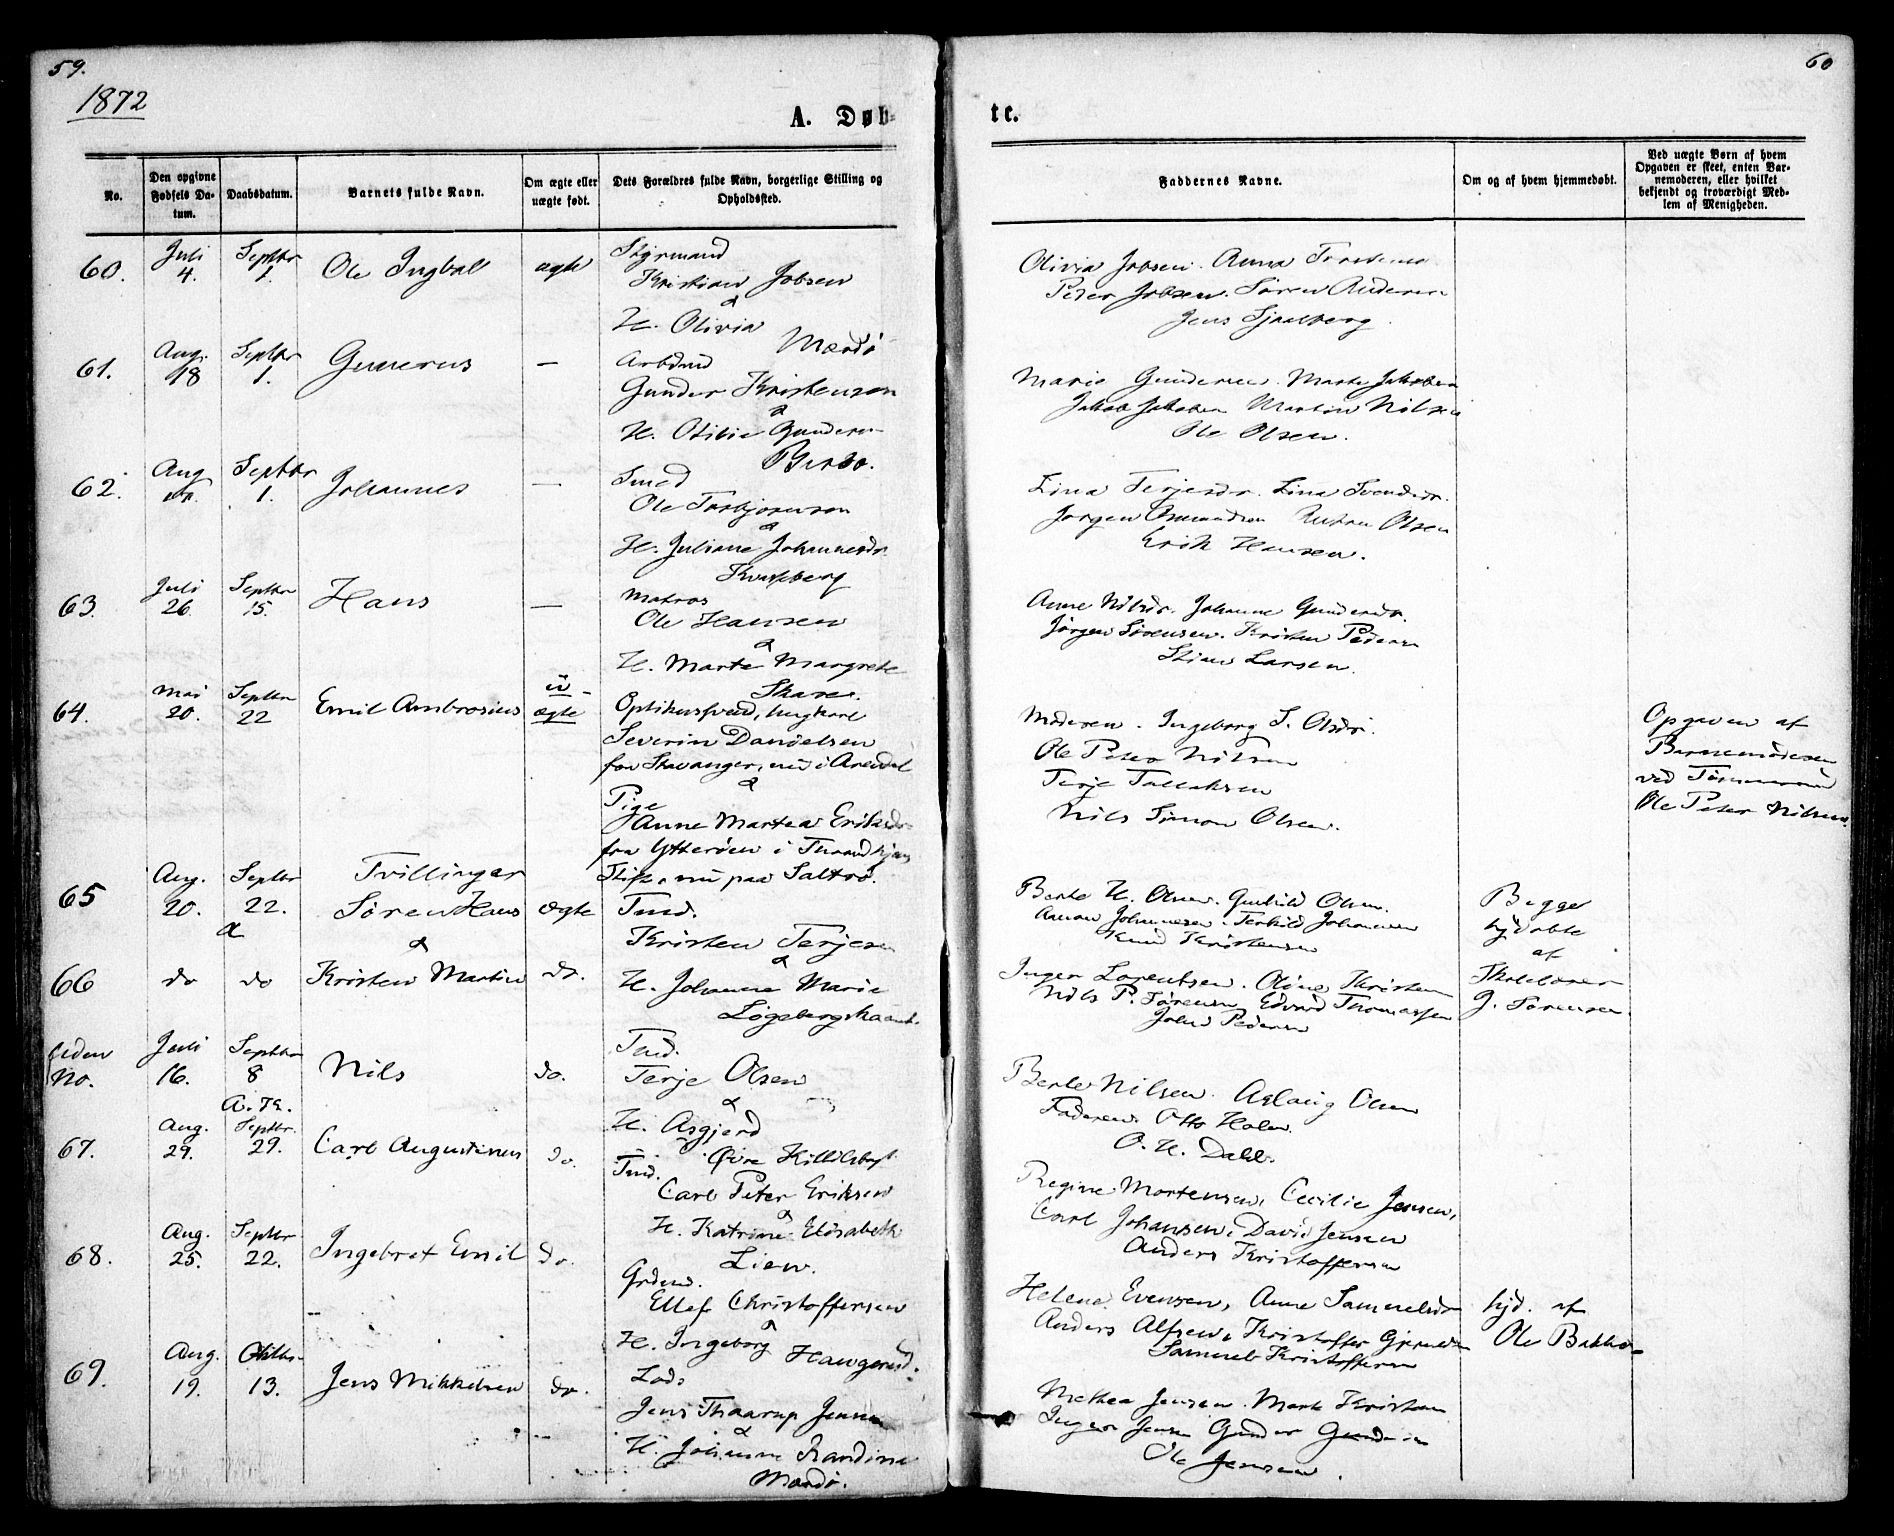 59.
60
1872
A. Døb-
te.
No.
Den opgivne Fødsels Datum.
Daabsdatum.
Barnets fulde Navn.
Om ægte eller uægte født.
Dets Forældres fulde Navn, borgerlige Stilling og Opholdssted.
Faddernes Navne.
Om og af hvem hjemmedøbt.
Ved uægte Børn af hvem Opgaven er skeet, enten Barnemoderen, eller hvilket bekjendt og troværdigt Medlem af Menigheden.
60.
Juli 4.
Septbr 1.
Ole
ægte
Styrmand
Kristian Jobsen
&
H. Olivia
Mærdø
Olivia Jobsen. Anna
Peder Jobsen. Søren Andersen
Jens
61.
Aug. 18
Septbr 1.
Gunerus
—
Arbdmd
Gunder Kristensen
&
H. Otilie Gunders
Marie Gundersen. Marte Jakobsen
Jakob Jakobsen Martin Nilsen
Ole Olsen.
62.
Aug
Septbr 1.
Johannes
—
Smed
Ole Torbjørnsen
&
H. Juliane Johannesdr.
Lina Terjesdr. Lina Svendsdr.
Jørgen Osmundsen Olsen
Erik Hansen.
63.
Juli 26.
Septbr 15.
Hans
—
Matros
Ole Hansen
&
H. Marte Margrete
Skare.
Anne Nilsdr. Johanne Gundersdr.
Jørgen Sørensen. Kristen Pedersen
Larsen.
64.
Mai 20.
Septbr 22
Emil Ambrosius
u-
ægte
Ungkarl
Severin Danielsen
fra Stavanger, nu i Arendal
&
Pige
Anne Martea Eriksdr.
fra Ytterøen i Trondhjems
Stift, nu paa Saltrø.
Moderen. Ingeborg S. Olsdr.
Ole Peter Nilsen
Terje Tallaksen
Nils Simon Olsen.
Opgaven af
Barnemoderen
ved Tømmermand
Ole Peter Nilsen.
65
Aug. 20.
Septbr 22.
&
Tvillinger
Søren Hans
&
ægte
Tmd.
Kristen Terjesen
&
H. Johanne Marie
Berte H. Olsen. Gunhild Olsen.
Johannesen. Terkild Johannesen
Knud Kristensen
Begge
hjdøbte
af
Skolelærer
J. Sørensen
66
do
do
Kristen Martin
do.
Inger Lorentsen. Oline Kristen
Nils P. Sørensen, Edvard Thomassen
Pedersen
Uden
No.
Juli 16.
Septbr 8
A. K.
Nils
do.
Tmd.
Terje Olsen
&
H. Asgjerd
Øvre
Berte Nilsen. Aslaug Olsen
Faderen. Otto Holm.
O. H. Dahl.
67.
Aug. 29.
Septbr. 29.
Carl Augustinus
do.
Tmd.
Carl Peter Eriksen
&
H. Katrine Elisabeth
Lien.
Regine Mortensen, Cecilie Jensen,
Carl Johansen, David Jensen
Anders Kristoffersen
68.
Aug. 25.
Septbr 22.
Ingebret Emil
do.
Grdmd.
Ellef Christoffersen
&
H. Ingeborg
Helene Evensen, Anne Samuelsdr
Anders Alfsen, Kristoffer
Samuel Kristoffersen
hjd. af
Ole
69.
Aug. 19.
Oktbr. 13.
Jens Mikkelsen
do.
Lods
Jens Thaarup Jensen
&
H. Johanne Randine
Mærdø.
Mathea Jensen. Marte Kristen
Inger Jensen Gunder
Ole Jensen.